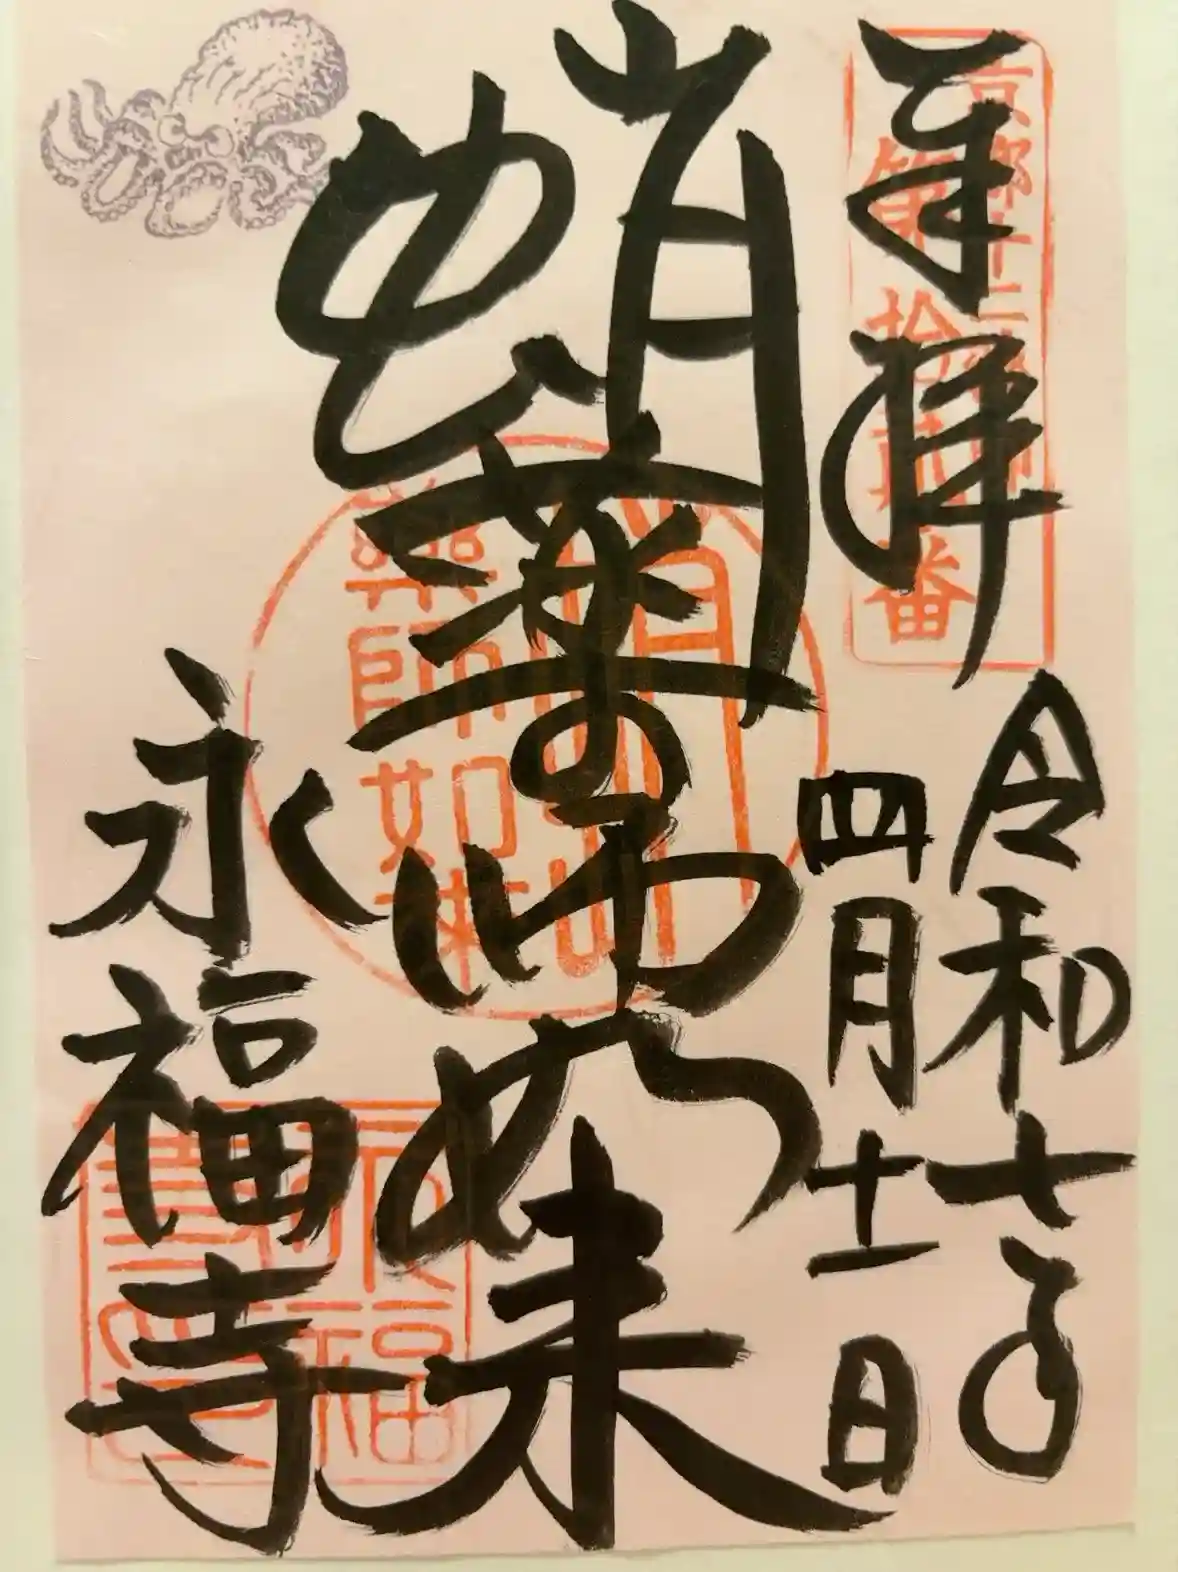 奉拝
京都十二薬師
第拾貳番
令和七年
四月十一日
蛸薬師如来
蛸
薬師如来
永福寺